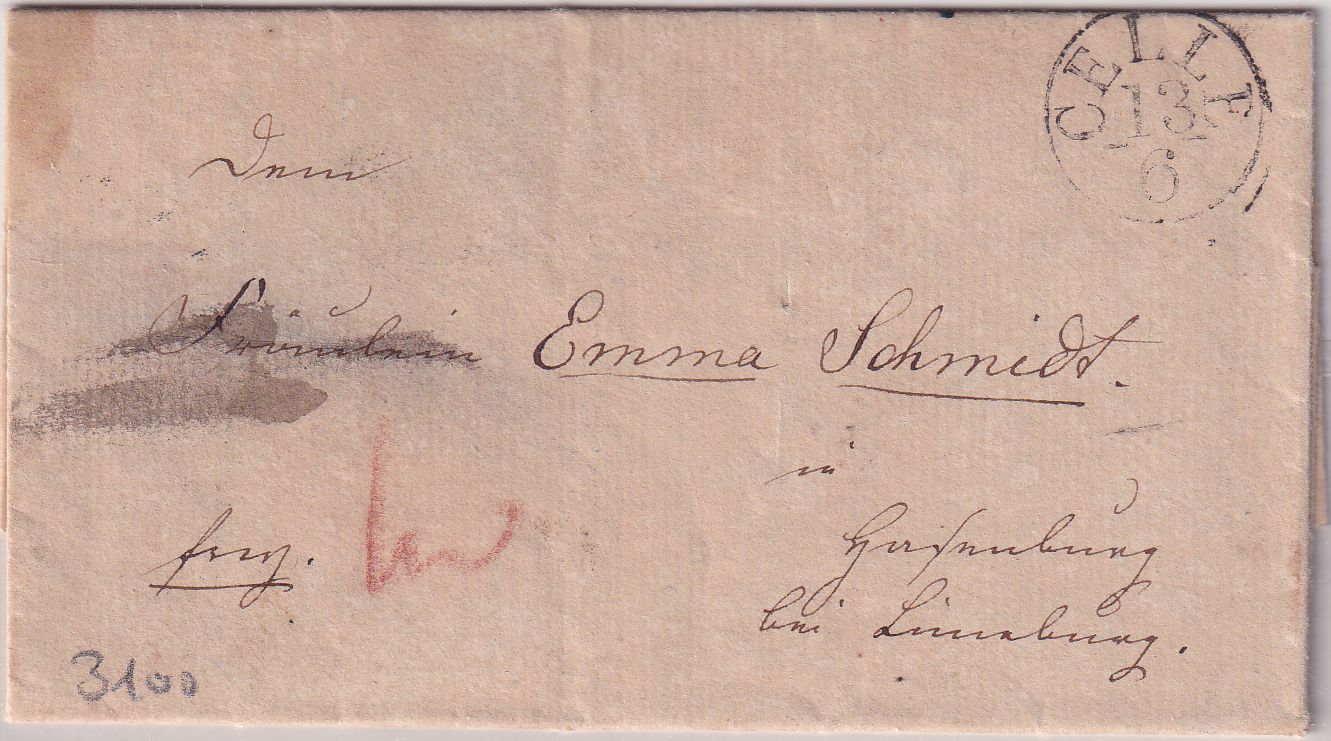 CELLE
13
6
Dem
Fräulein Emma Schmidt.
in
Hasenburg
bei Lüneburg.
frey.
3100